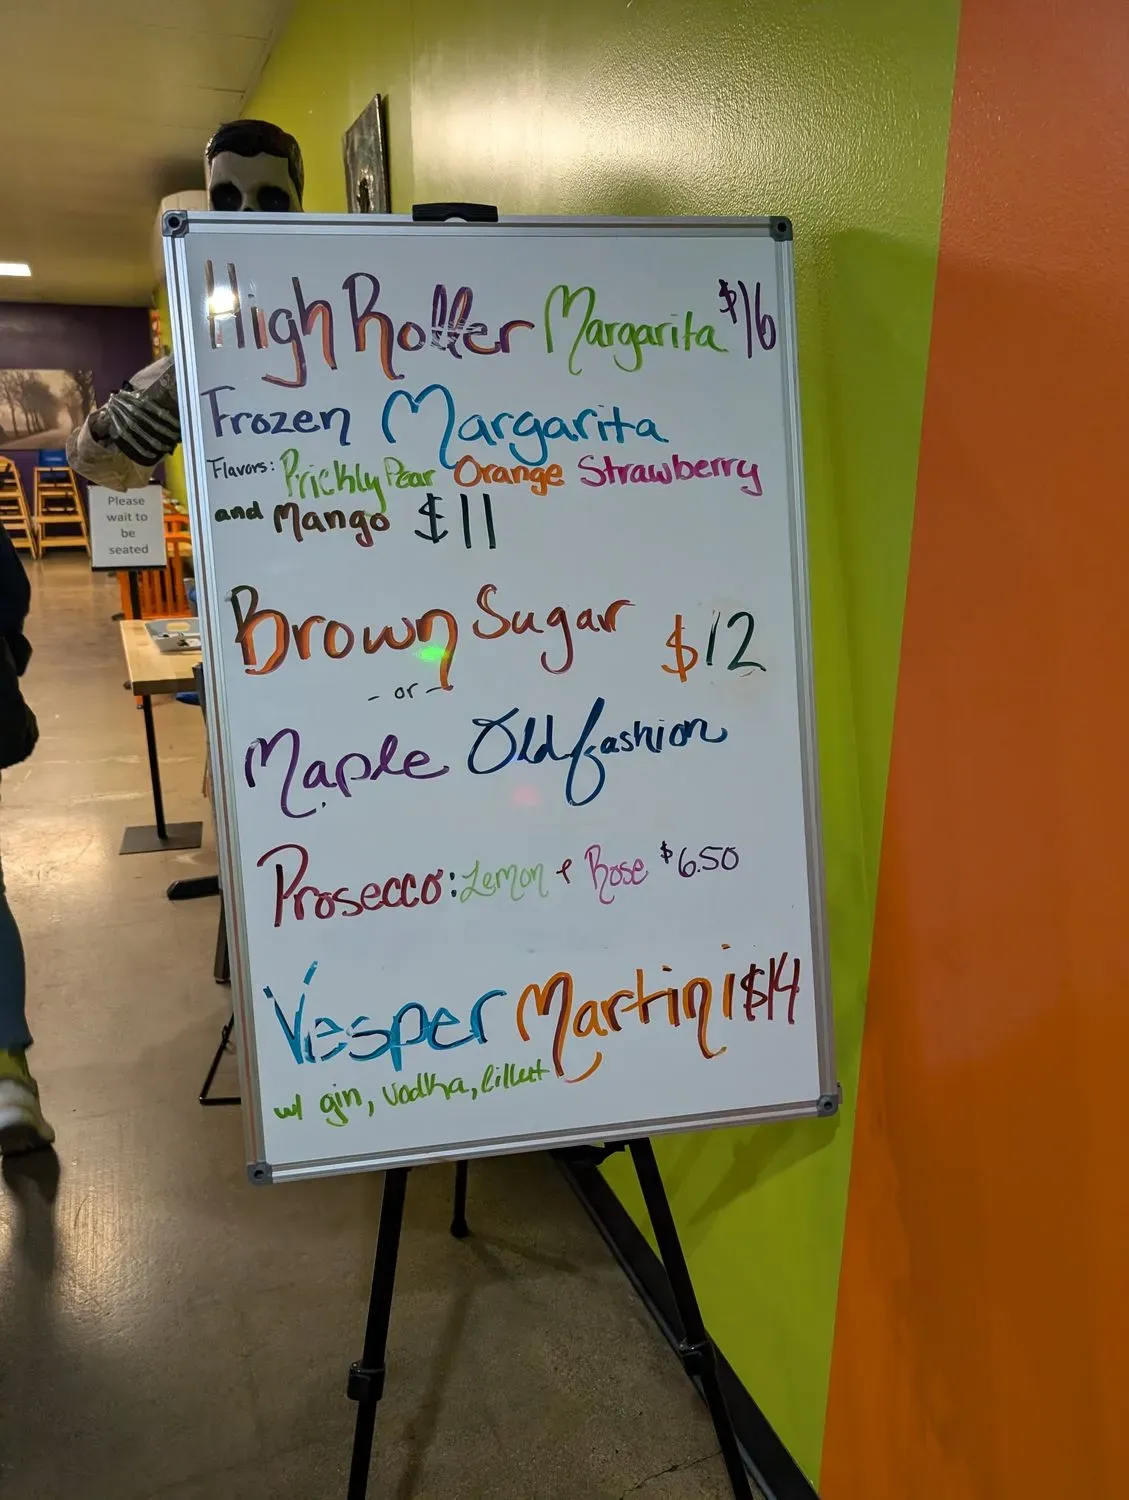 High Roller Margarita $16
Frozen Margarita
Flavors: Prickly Pear Orange Strawberry
and Mango $11
Brown Sugar $12
- or -
Maple Old fashion
Prosecco: Lemon + Rose $6.50
Vesper Martini $14
w/ gin, vodka, lillet
Please
wait to
be
seated